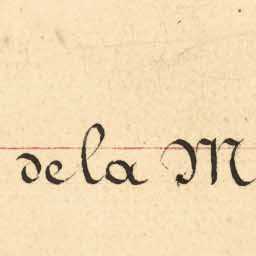 de la M